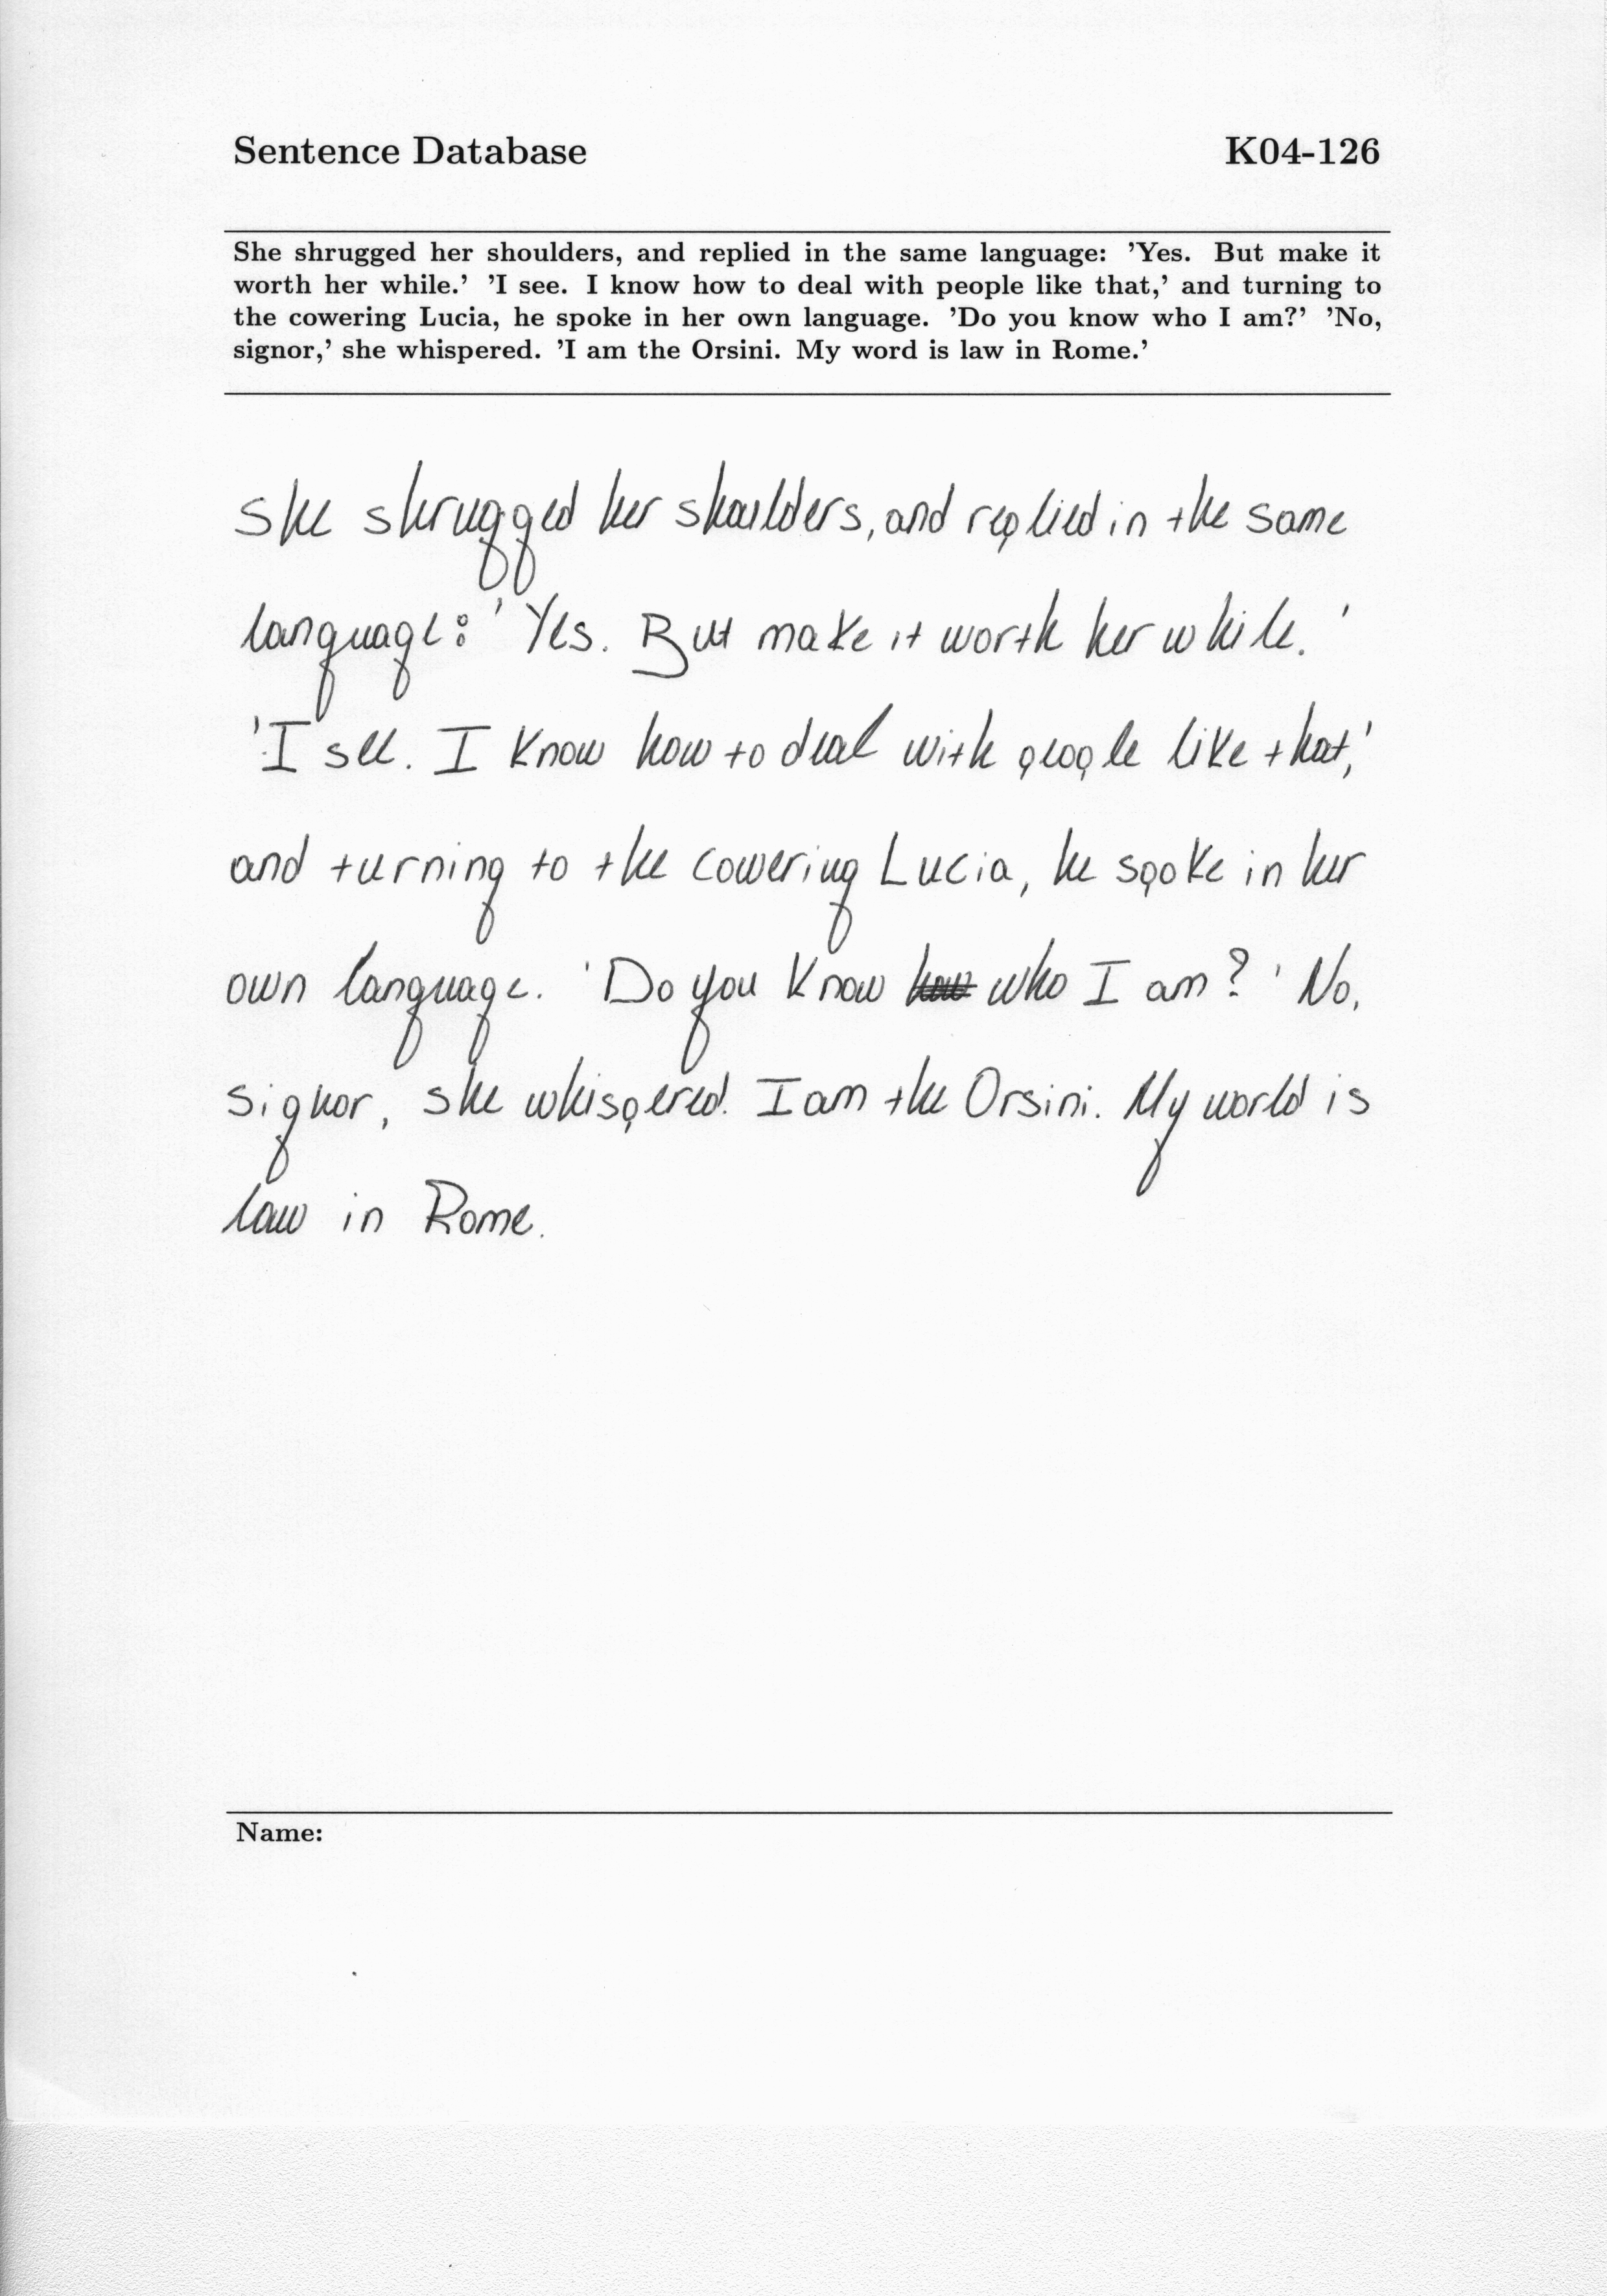 Sentence Database K04-126
She shrugged her shoulders, and replied in the same language: 'Yes. But make it
worth her while.' 'I see. I know how to deal with people like that,' and turning to
the cowering Lucia, he spoke in her own language. 'Do you know who I am?' 'No,
signor,' she whispered. 'I am the Orsini. My word is law in Rome.'
She shrugged her shoulders, and replied in the same
language: ' Yes. But make it worth her while. '
'I see. I know how to deal with people like that,'
and turning to the cowering Lucia, he spoke in her
own language. 'Do you know who I am? ' No,
signor, she whispered. I am the Orsini. My world is
law in Rome.
Name: